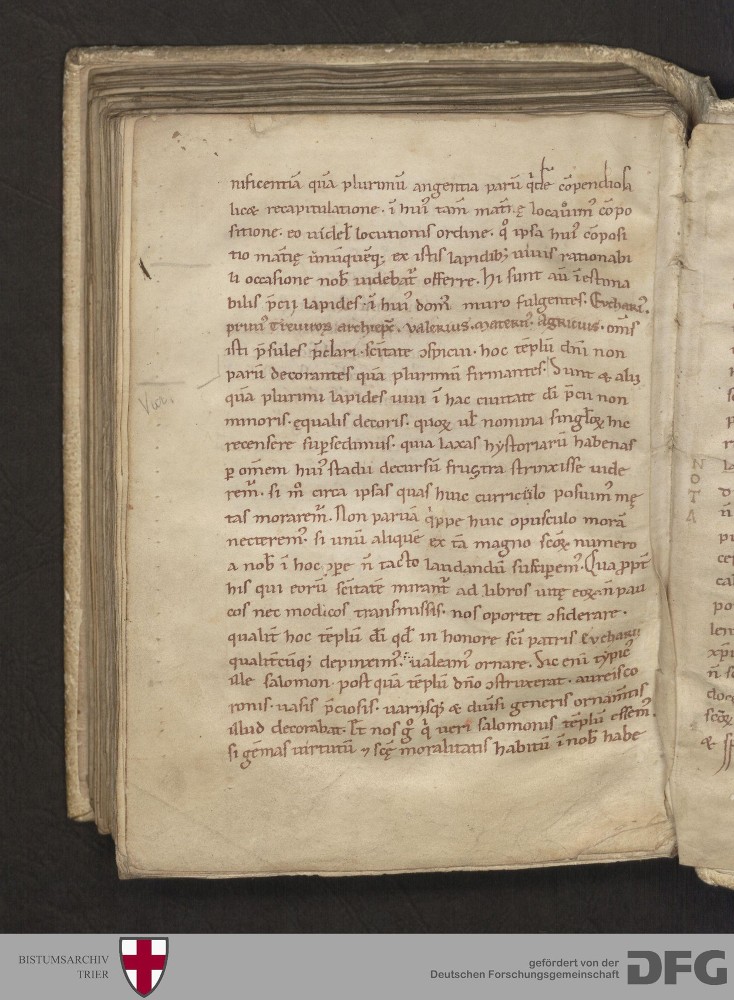 nificentiā quā plurimū augentia parū q̇dē cōpendiosa
licæ recapitulatione · ī hui᷒ tam̄ mat̄ię locauim᷒ cōpo
sitione · eo uidel̄ locutionis ordine · q° ipsa hui᷒ cōposi
tio mat̄ię unūquēq; ex istis lapidib; uiuis rationabi
li occasione nob̄ uidebat᷒ offerre. Hi sunt aū īestima
biles p̄cij lapides · ī hui᷒ dom᷒ muro fulgentes. Euchari᷒
prim᷒ Treuiroꝝ archiep̄c. Valerius. Matern᷒. Agricius. om̄s
isti p̄sules p̄clari · sc̄itate ɔspicui · hoc tēplū dn̄i non
parū decorantes quā plurimū firmantes. Sunt & alij
quā plurimi lapides uiui ī hac ciuitate dī p̄cij non
minoris · equalis decoris. quoꝝ ul̄ nomina singl̄oꝝ hic
recensere sup̄sedimus. quia laxas hystoriarū habenas
ꝑ om̄em hui᷒ stadii decursū frustra strinxisse uide
rem᷒. si m̊ circa ipsas quas huic curriculo posuim᷒ mę
tas morarem᷒. Non paruā q̇ppe huic opusculo morā
necterem᷒. si unū aliquē ex tā magno sc̄oꝝ numero
a nob̄ ī hoc oꝑe n̄ tacto laudandū susciperem᷒. Qua ꝓpt̄
his qui eorū sc̄itatē mirant᷒ ad libros uitę eoꝝ n̄ pau
cos nec modicos transmissis. nos oportet ɔsiderare.
qualit̄ hoc tēplū dī qd̄ in honore sc̄i patris Eucharii
qualit̄cūq; depinxim᷒. ualeam᷒ ornare. Sic enī typic᷒
ille salomon · post quā tēplū dn̄o ɔstruxerat. aureis co
ronis · uasis p̄ciosis. uarijsq; & diu͛si generis ornam̄tis
illud decorabat. Et nos g° q̇ ueri salomonis tēplū essem᷒.
si gēmas uirtutū ⁊ scę moralitatis habitū ī nob̄ habe
NOTA
BISTUMSARCHIV
TRIER
gefördert von der
Deutschen Forschungsgemeinschaft
DFG